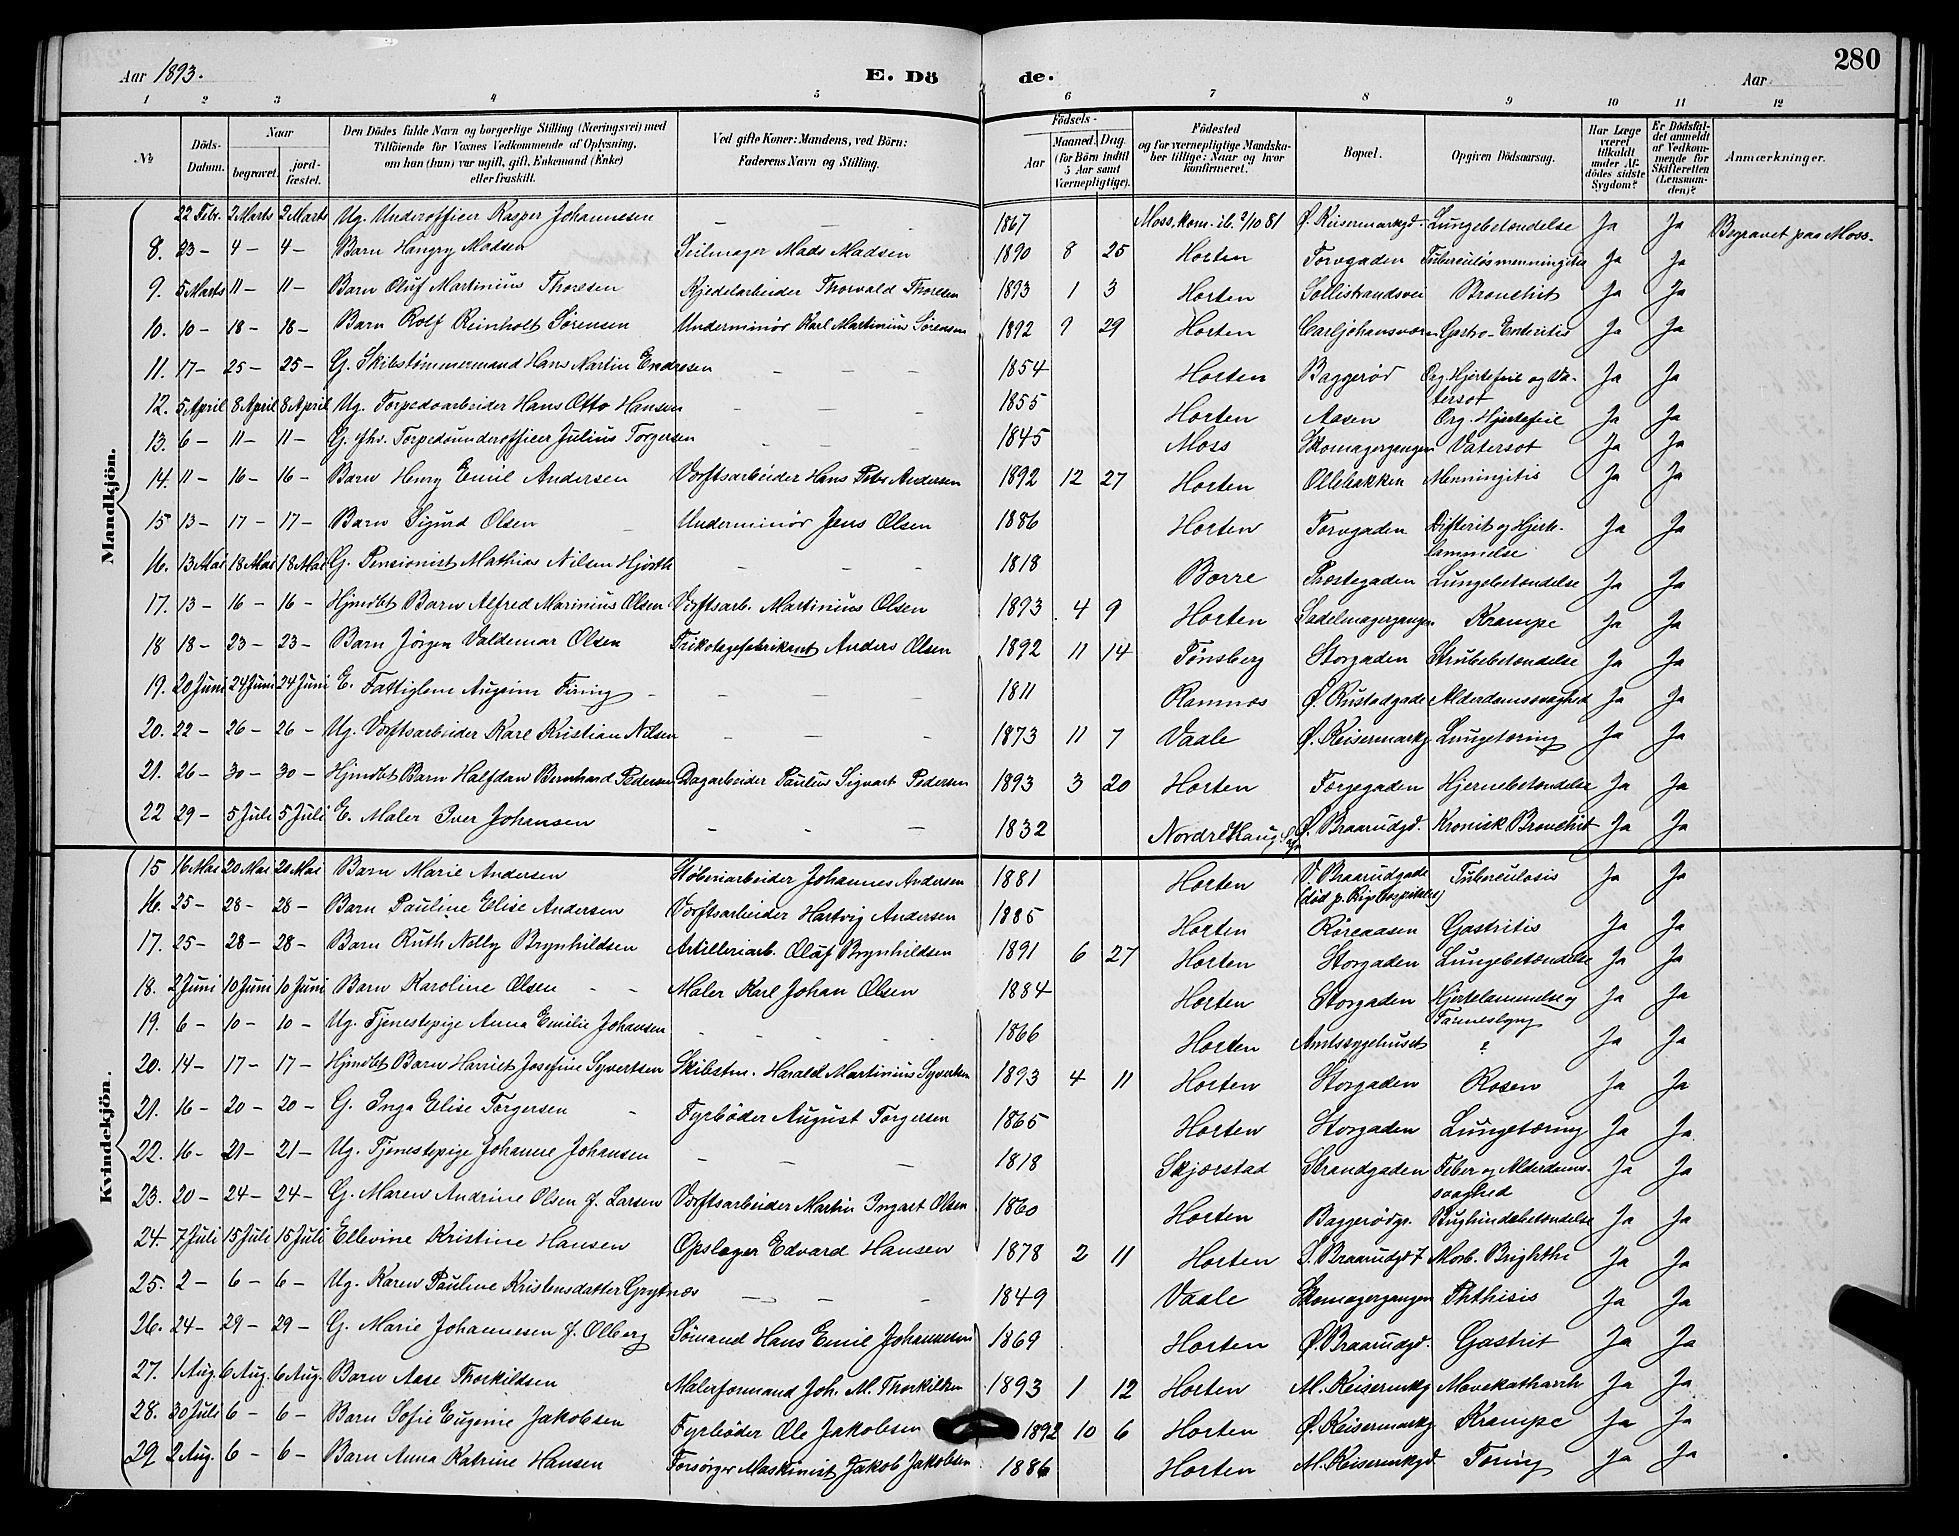 280
Aar 1893.
E. Dö
de.
Aar
1 2 3 4 5 6 7 8 9 10 11 12
№
Döds-
Datum.
Naar
begravet.
jord-
fæstet.
Den Dödes fulde Navn og borgerlige Stilling (Næringsvei) med
Tilföiende for Voxnes Vedkommende af Oplysning,
om han (hun) var ugift, gift, Enkemand (Enke)
eller fraskilt.
Ved gifte Koner: Mandens, ved Börn:
Faderens Navn og Stilling.
Födsels-
Aar
Maaned. Dag.
(for Börn indtil
5 Aar samt
Værnepligtige).
Födested
og for værnepligtige Mandska-
ber tillige: Naar og hvor
konfirmeret.
Bopæl.
Opgiven Dödsaarsag.
Har Læge
været
tilkaldt
under Af-
dödes sidste
Sygdom?
Er Dödsfal-
det anmeldt
af Vedkom-
mende for
Skifteretten
(Lensman-
den)?
Anmærkninger.
Mandkjön.
22 Febr. 2 Marts 2 Marts Ug. Underofficer Kasper Johannesen — — — 1867 Moss, kom. ib. 2/10 81 Ø. Keisermarkgd. Lungebetændelse Ja Ja Begravet paa Moss.
8. 23 — 4 — 4 — Barn Hangry Madsen Seilmager Mads Madsen 1890 8 25 Horten Torvgaden Tuberculøsmenningitis Ja Ja
9. 5 Marts 11 — 11 — Barn Oluf Martinius Thoresen Kjedelarbeider Thorvald Thoresen 1893 1 3 Horten Sollistrandsvei Bronchit Ja Ja
10. 10 — 18 — 18 — Barn Rolf Reinholt Sørensen Underminør Karl Martinius Sørensen 1892 9 29 Horten Carljohansværn Gastro-Enteritis Ja Ja
11. 17 — 25 — 25 — G. Skibstømmermand Hans Martin Endresen — — — 1854 Horten Baggerød Org. Hjertefeil og Va-
tersot Ja Ja
12. 5 April 8 April 8 April Ug. Torpedoarbeider Hans Otto Hansen — — — 1855 Horten Aasen Org. Hjertefeil Ja Ja
13. 6 — 11 — 11 — G. fhv. Torpedounderofficer Julius Torgersen — — 1845 Moss Skomagergangen Vatersot Ja Ja
14. 11 — 16 — 16 — Barn Henry Emil Andersen Værftsarbeider Hans Peter Andersen 1892 12 27 Horten Ollebakken Menningitis Ja Ja
15 13 — 17 — 17 — Barn Sigurd Olsen Underminør Jens Olsen 1886 Horten Torvgaden Difterit og Hjerte-
lammelse Ja Ja
16. 13 Mai 18 Mai 18 Mai G. Pensionist Mathias Nilsen Hjorth — — — 1818 Borre Præstegaden Lungebetændelse Ja Ja
17. 13 — 16 — 16 — Hjmdbt Barn Alfred Marinius Olsen Værftsarb. Martinius Olsen 1893 4 9 Horten Sadelmagergangen Krampe Ja Ja
18 18 — 23 — 23 — Barn Jørgen Valdemar Olsen Trikotagefabrikant Anders Olsen 1892 11 14 Tønsberg Storgaden Strubebetændelse Ja Ja
19. 20 Juni 24 Juni 24 Juni E. Fattiglem Augsim Firing — — — — 1811 Ramnæs Ø. Rustadgade Alderdomssvaghed Ja Ja
20. 22 — 26 — 26 — Ug. Værftsarbeider Karl Kristian Nilsen — — — 1873 11 7 Vaale Ø. Keisermarkg Lungetæring Ja Ja
21. 26 — 30 — 30 — Hjmdbt Barn Halfdan Bernhard Pedersen Dagarbeider Paulus Sigvart Pedersen 1893 3 20 Horten Torjegaden Hjernebetændelse Ja Ja
22 29 — 5 Juli 5 Juli E. Maler Iver Johansen — — — 1832 Nordre Haug Ø. Braarudgd. Kronisk Bronchit Ja Ja
Kvindekjön.
15 16 Mai 20 Mai 20 Mai Barn Marie Andersen Støberiarbeider Johannes Andersen 1881 Horten V. Braarudgade
(død p. Rigshospitalet) Tuberculosis Ja Ja
16. 25 — 28 — 28 — Barn Pauline Elise Andersen Værftsarbeider Hartvig Andersen 1885 Horten Røreaasen Gastritis Ja Ja
17. 25 — 28 — 28 — Barn Ruth Nelly Brynhildsen Artilleriarb. Oluf Brynhildsen 1891 6 27 Horten Storgaden Lungebetændelse Ja Ja
18. 2 Juni 10 Juni 10 Juni Barn Karoline Olsen — — Maler Karl Johan Olsen 1884 Horten Storgaden Hjertelammelse og
Tarmeslyng Ja Ja
19. 6 — 10 — 10 — Ug. Tjenestepige Anna Emilie Johansen — — — 1866 Horten Amtssygehuset ? Ja Ja
20. 14 — 17 — 17 — Hjmdbt Barn Harriet Josefine Syvertsen Skibstm. Harald Martinius Syvertsen 1893 4 11 Horten Storgaden Rosen Ja Ja
21. 16 — 20 — 20 — G. Inga Elise Torgersen — Fyrbøder August Torgersen 1865 Horten Storgaden Lungetæring Ja Ja
22. 16 — 21 — 21 — Ug. Tjenestepige Johanne Johansen — — — 1818 Skjærstad Strandgaden Feber og Alderdoms-
svaghed Ja Ja
23. 20 — 24 — 24 — G. Maren Andrine Olsen f. Larsen Værftsarbeider Martin Ingart Olsen 1860 Horten Baggerødgr. Bughindebetændelse Ja Ja
24. 7 Juli 15 Juli 15 Juli Ellevine Kristine Hansen Opslager Edvard Hansen 1878 2 11 Horten S. Braarudgd 7 Morb. Brighthi Ja Ja
25. 2 — 6 — 6 — Ug. Karen Pauline Kristensdatter Grytnæs — — — 1849 Vaale Skomagergangen Phthisis Ja Ja
26. 24 — 29 — 29 — G. Marie Johannesen f. Olberg Sømand Hans Emil Johannesen 1869 Horten Ø. Braarudgd. Gastrit Ja Ja
27. 1 Aug. 6 Aug. 6 Aug. Barn Aase Thorkildsen Malerformand Joh. M. Thorkildsen 1893 1 12 Horten M. Keisermkg Mavekatharrh Ja Ja
28. 30 Juli 6 — 6 — Barn Sofie Eugenie Jakobsen Fyrbøder Ole Jakobsen 1892 10 6 Horten Ø. Keisermarkg Krampe Ja Ja
29 2 Aug. 6 — 6 — Barn Anna Katrine Hansen Forsørger Maskinist Jakob Jakobsen 1886 Horten M. Keisermkgd. Tæring Ja Ja
5